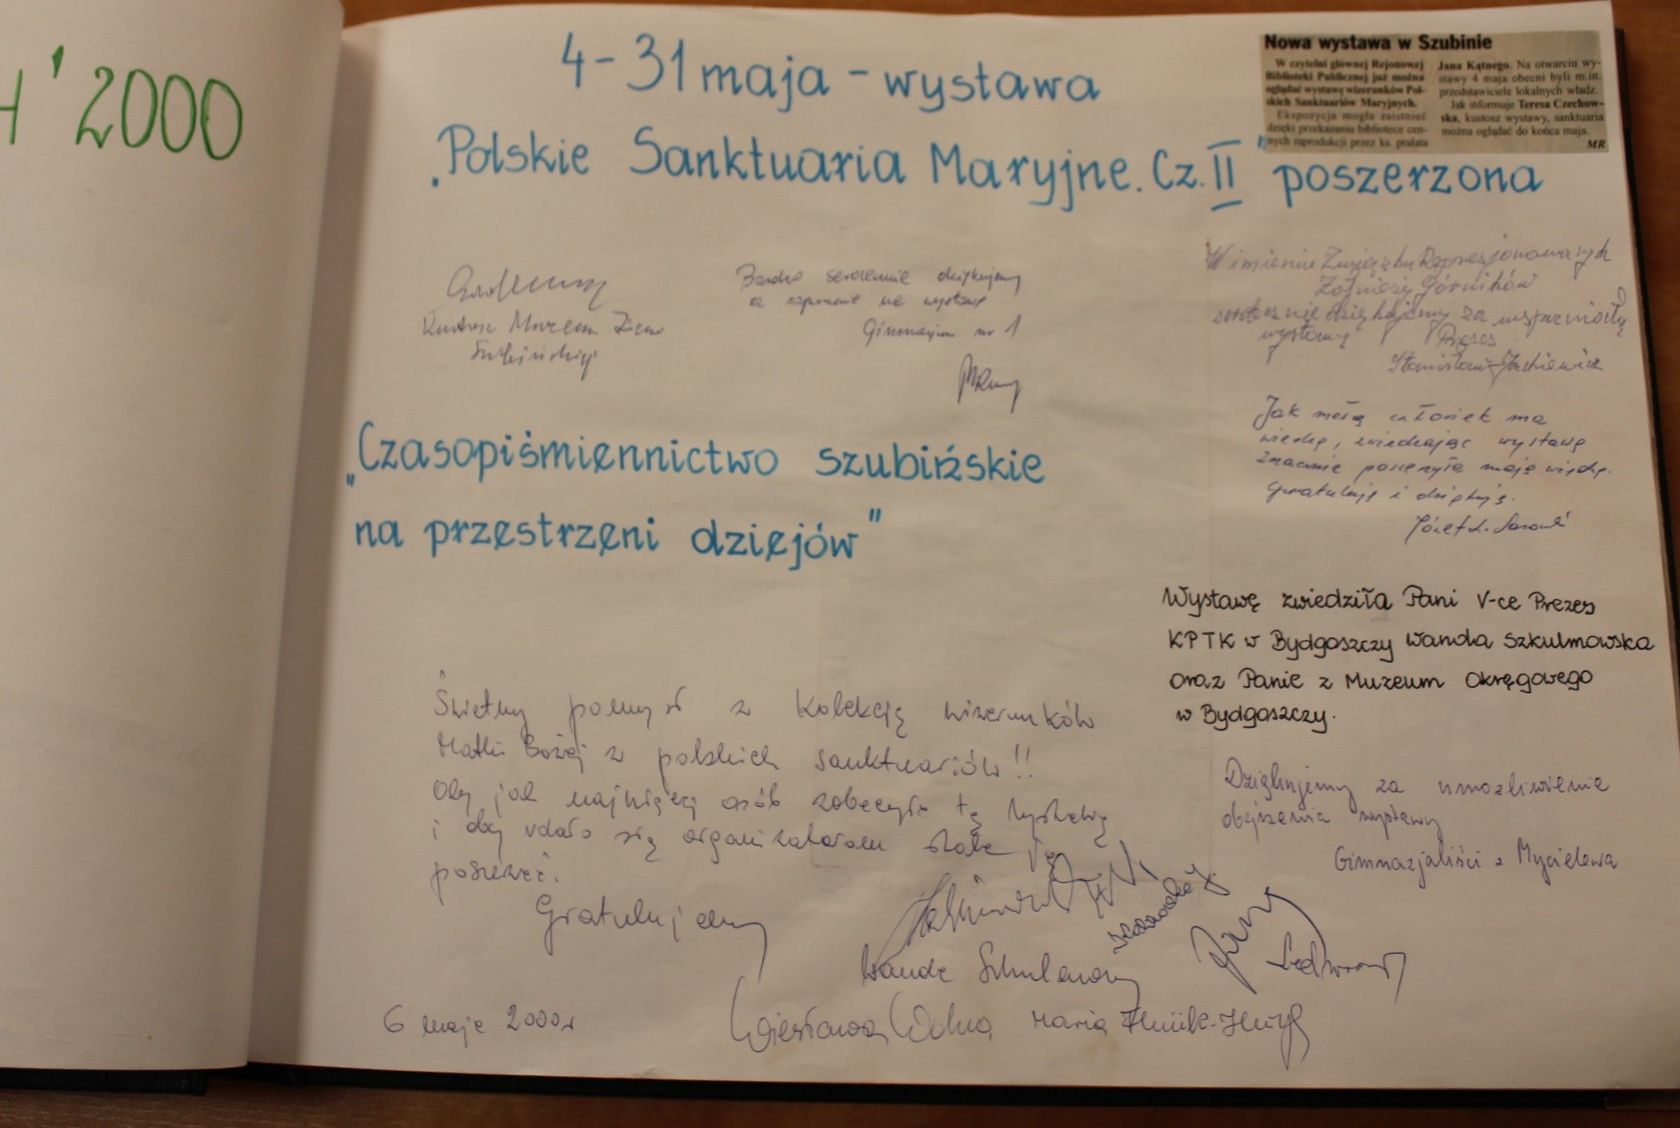 ' 2000
4-31 maja - wystawa
„Polskie Sanktuaria Maryjne. Cz. II" poszerzona
Nowa wystawa w Szubinie
W czytelni głównej Rejonowej
Biblioteki Publicznej już można
oglądać wystawę wizerunków Pol-
skich Sanktuariów Maryjnych.
Ekspozycja mogła zaistnieć
dzięki przekazaniu bibliotece cen-
nych reprodukcji przez ks. prałata
Jana Kątnego. Na otwarciu wy-
stawy 4 maja obecni byli m.in.
przedstawiciele lokalnych władz.
Jak informuje Teresa Czechow-
ska, kustosz wystawy, sanktuaria
można oglądać do końca maja.
MR
Kustosz Muzeum Ziemi
Szubińskiej
Bardzo serdecznie dziękujemy
za zaproszenie na wystawę
Gimnazjum nr 1
W imieniu Związku Represjonowanych
Żołnierzy Górników
serdecznie dziękujemy za wspaniałą
wystawę Prezes
Stanisław
Jak małą człowiek ma
wiedzę, zwiedzając wystawę
znacznie poszerzyłem moją wiedzę.
Gratuluję i dziękuję.
Józef
„Czasopiśmiennictwo szubińskie
na przestrzeni dziejów"
Wystawę zwiedziła Pani V-ce Prezes
KPTK w Bydgoszczy Wanda Szkulmowska
oraz Panie z Muzeum Okręgowego
w Bydgoszczy.
Świetny pomysł z kolekcją wizerunków
Matki Bożej z polskich sanktuariów!!
Oby jak najwięcej osób zobaczyło tę wystawę
i oby udało się organizatorom stale ją
poszerzać.
Gratulujemy
Dziękujemy za umożliwienie
obejrzenia wystawy
Gimnazjaliści z Mycielewa
Wanda Szkulmowska
Wiesława
Maria
6 maja 2000r